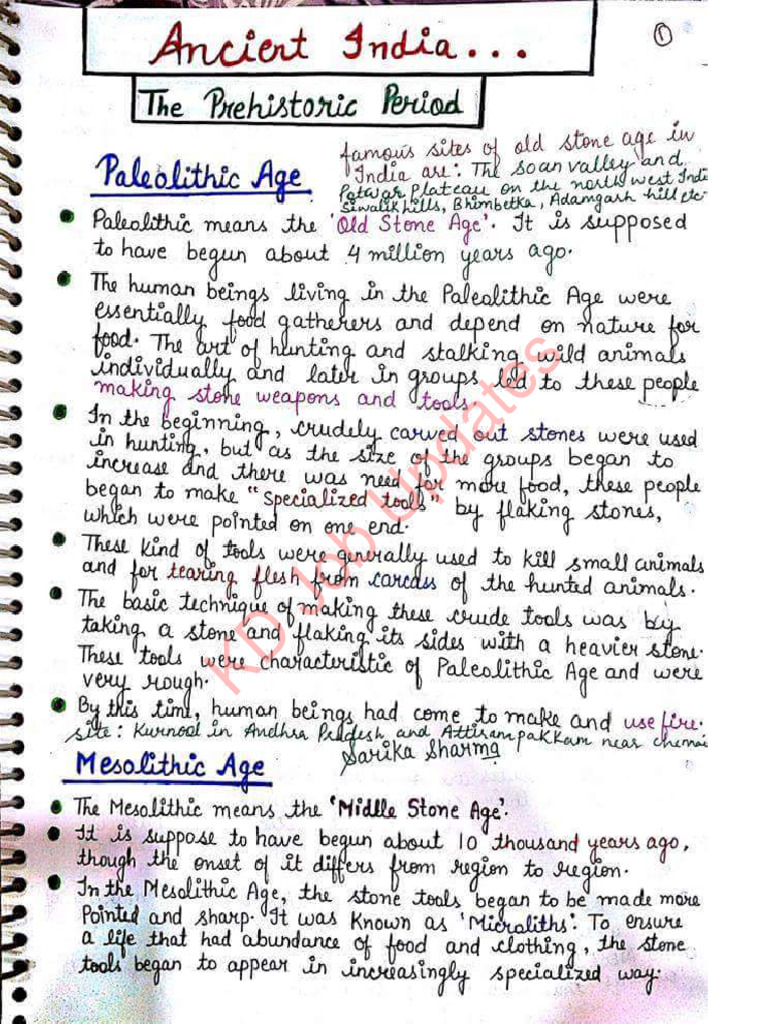 Ancient India...
1
The Prehistoric Period
Paleolithic Age
famous sites of old stone age in
India are: The soan valley and
Patwar Plateau on the north west Indi
Siwalik hills, Bhimbetka, Adamgarh hill etc.
Paleolithic means the 'Old Stone Age'. It is supposed
to have begun about 4 million years ago.
The human beings living in the Paleolithic Age were
essentially food gatherers and depend on nature for
food. The art of hunting and stalking wild animals
individually and later in groups led to these people
making stone weapons and tools.
In the beginning, crudely carved out stones were used
in hunting, but as the size of the groups began to
increase and there was need for more food, these people
began to make "specialized tools" by flaking stones,
which were pointed on one end.
These kind of tools were generally used to kill small animals
and for tearing flesh from carcass of the hunted animals.
The basic technique of making these crude tools was by
taking a stone and flaking its sides with a heavier stone.
These tools were characteristic of Paleolithic Age and were
very rough.
By this time, human beings had come to make and use fire.
site: Kurnool in Andhra Pradesh and Attirampakkam near chennai
Sarika Sharma
Mesolithic Age
The Mesolithic means the 'Midlle Stone Age'.
It is suppose to have begun about 10 thousand years ago,
though the onset of it differs from region to region.
In the Mesolithic Age, the stone tools began to be made more
Pointed and sharp. It was Known as 'Microliths'. To ensure
a life that had abundance of food and clothing, the stone
tools began to appear in increasingly specialized way.
KD Job Updates